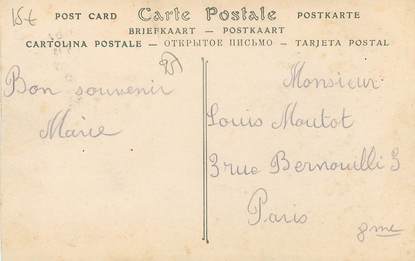 15€
POST CARD Carte Postale POSTKARTE
BRIEFKAART — POSTKAART
CARTOLINA POSTALE — ОТКРЫТОЕ ПИСЬМО — TARJETA POSTAL
95
Bon souvenir
Marie
Monsieur
Louis Moutot
3 rue Bernouilli 3
Paris
8me